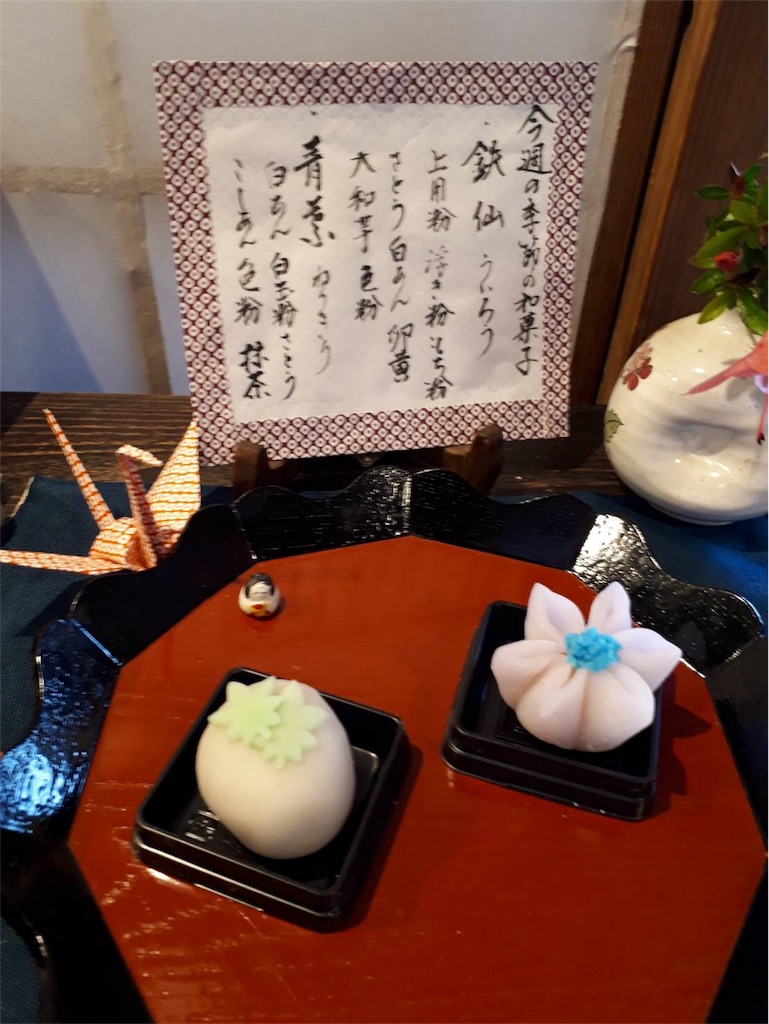 今週の季節の和菓子
・鉄仙 ういろう
上用粉 浮き粉 もち粉
さとう 白あん 卵黄
大和芋 色粉
・青葉 ねりきり
白あん 白玉粉 さとう
こしあん 色粉 抹茶